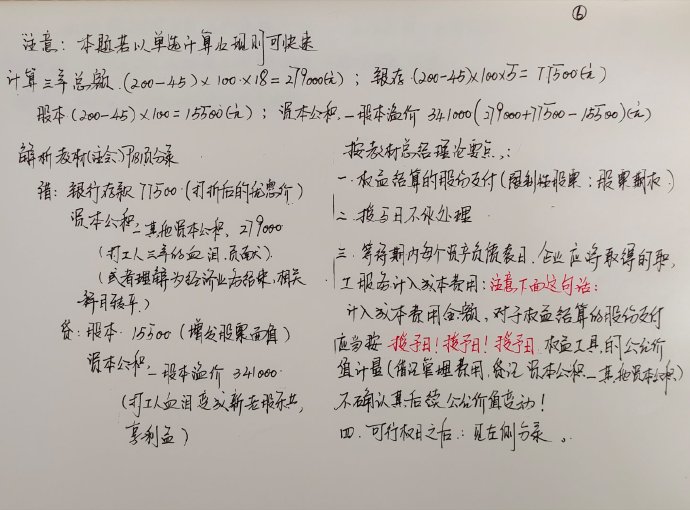 ⑥
注意：本题若以单选计算出现则可快速
计算三年总额.(200-45)×100×18=279000(元)；银存.(200-45)×100×5=77500(元)
股本(200-45)×100=15500(元)；资本公积.—股本溢价 341000(279000+77500-15500)(元)
解析教材(注会)P181页分录
借：银行存款 77500 (打折后的优惠价)
资本公积
—其他资本公积. 279000
(打工人三年的血泪.负面)
(或者理解为经济业务结束，相关
科目转平.)
贷：股本 15500 (增发股票面值)
资本公积
—股本溢价 341000.
(打工人血泪变成新老股东共
享利益)
按教材总结理论要点：
一.权益结算的股份支付(限制性股票；股票期权)
二.授予日不做处理
三.等待期内每个资产负债表日.企业应将取得的职
工服务计入成本费用：注意下面这句话：
计入成本费用金额，对于权益结算的股份支付
应当按 授予日！授予日！授予日.权益工具的公允价
值计量(借记管理费用.贷记资本公积—其他资本公积)
不确认其后续公允价值变动！
四.可行权日之后：见左侧分录。